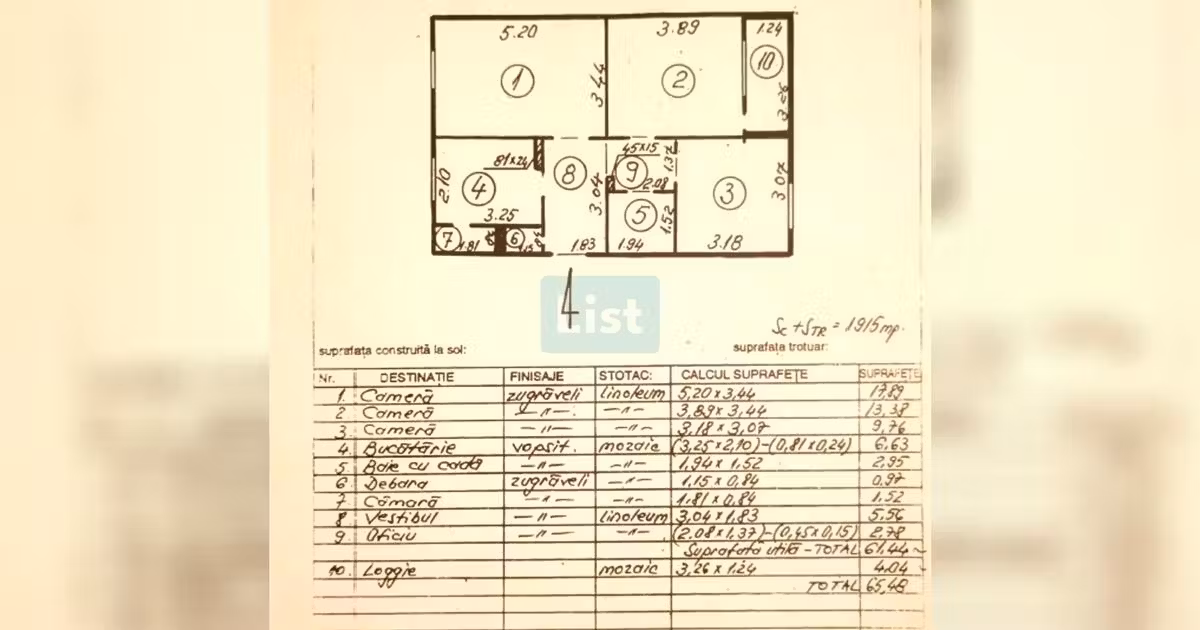 5.20 3.89 1.24
1 2 10
3.44 3.26
81x24 45x15 1.37
8 9 2.08
2.10 4 3.04 3 3.07
3.25 5 1.52
7 1.81 6 1.15 1.83 1.94 3.18
list
Sc + STR = 1915 mp.
suprafața construită la sol: suprafața trotuar:
Nr. DESTINAȚIE FINISAJE STOTAC: CALCUL SUPRAFEȚE SUPRAFEȚE
1. Cameră zugrăveli linoleum 5,20 x 3,44 17,89
2 Cameră —"— —"— 3,89 x 3,44 13,38
3. Cameră —"— —"— 3,18 x 3,07 9,76
4. Bucătărie vopsit. mozaic (3,25 x 2,10)-(0,81 x 0,24) 6,63
5 Baie cu cadă —"— —"— 1,94 x 1,52 2,95
6. Debara zugrăveli —"— 1,15 x 0,84 0,97
7 Cămară —"— —"— 1,81 x 0,84 1,52
8 Vestibul —"— linoleum 3,04 x 1,83 5,56
9. Oficiu —"— —"— (2,08 x 1,37)-(0,45 x 0,15) 2,78
Suprafață utilă - TOTAL 61,44
10. Loggie mozaic 3,26 x 1,24 4,04
TOTAL 65,48